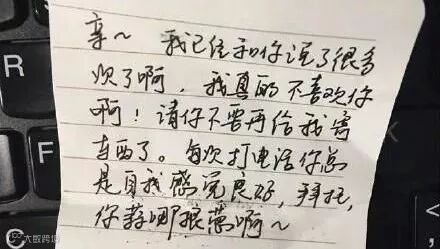 亲～ 我已经和你说了很多
次了啊，我真的不喜欢你
啊！请你不要再给我寄
东西了。每次打电话你总
是自我感觉良好，拜托，
你算哪根葱啊～
R
F
C
大数跨境